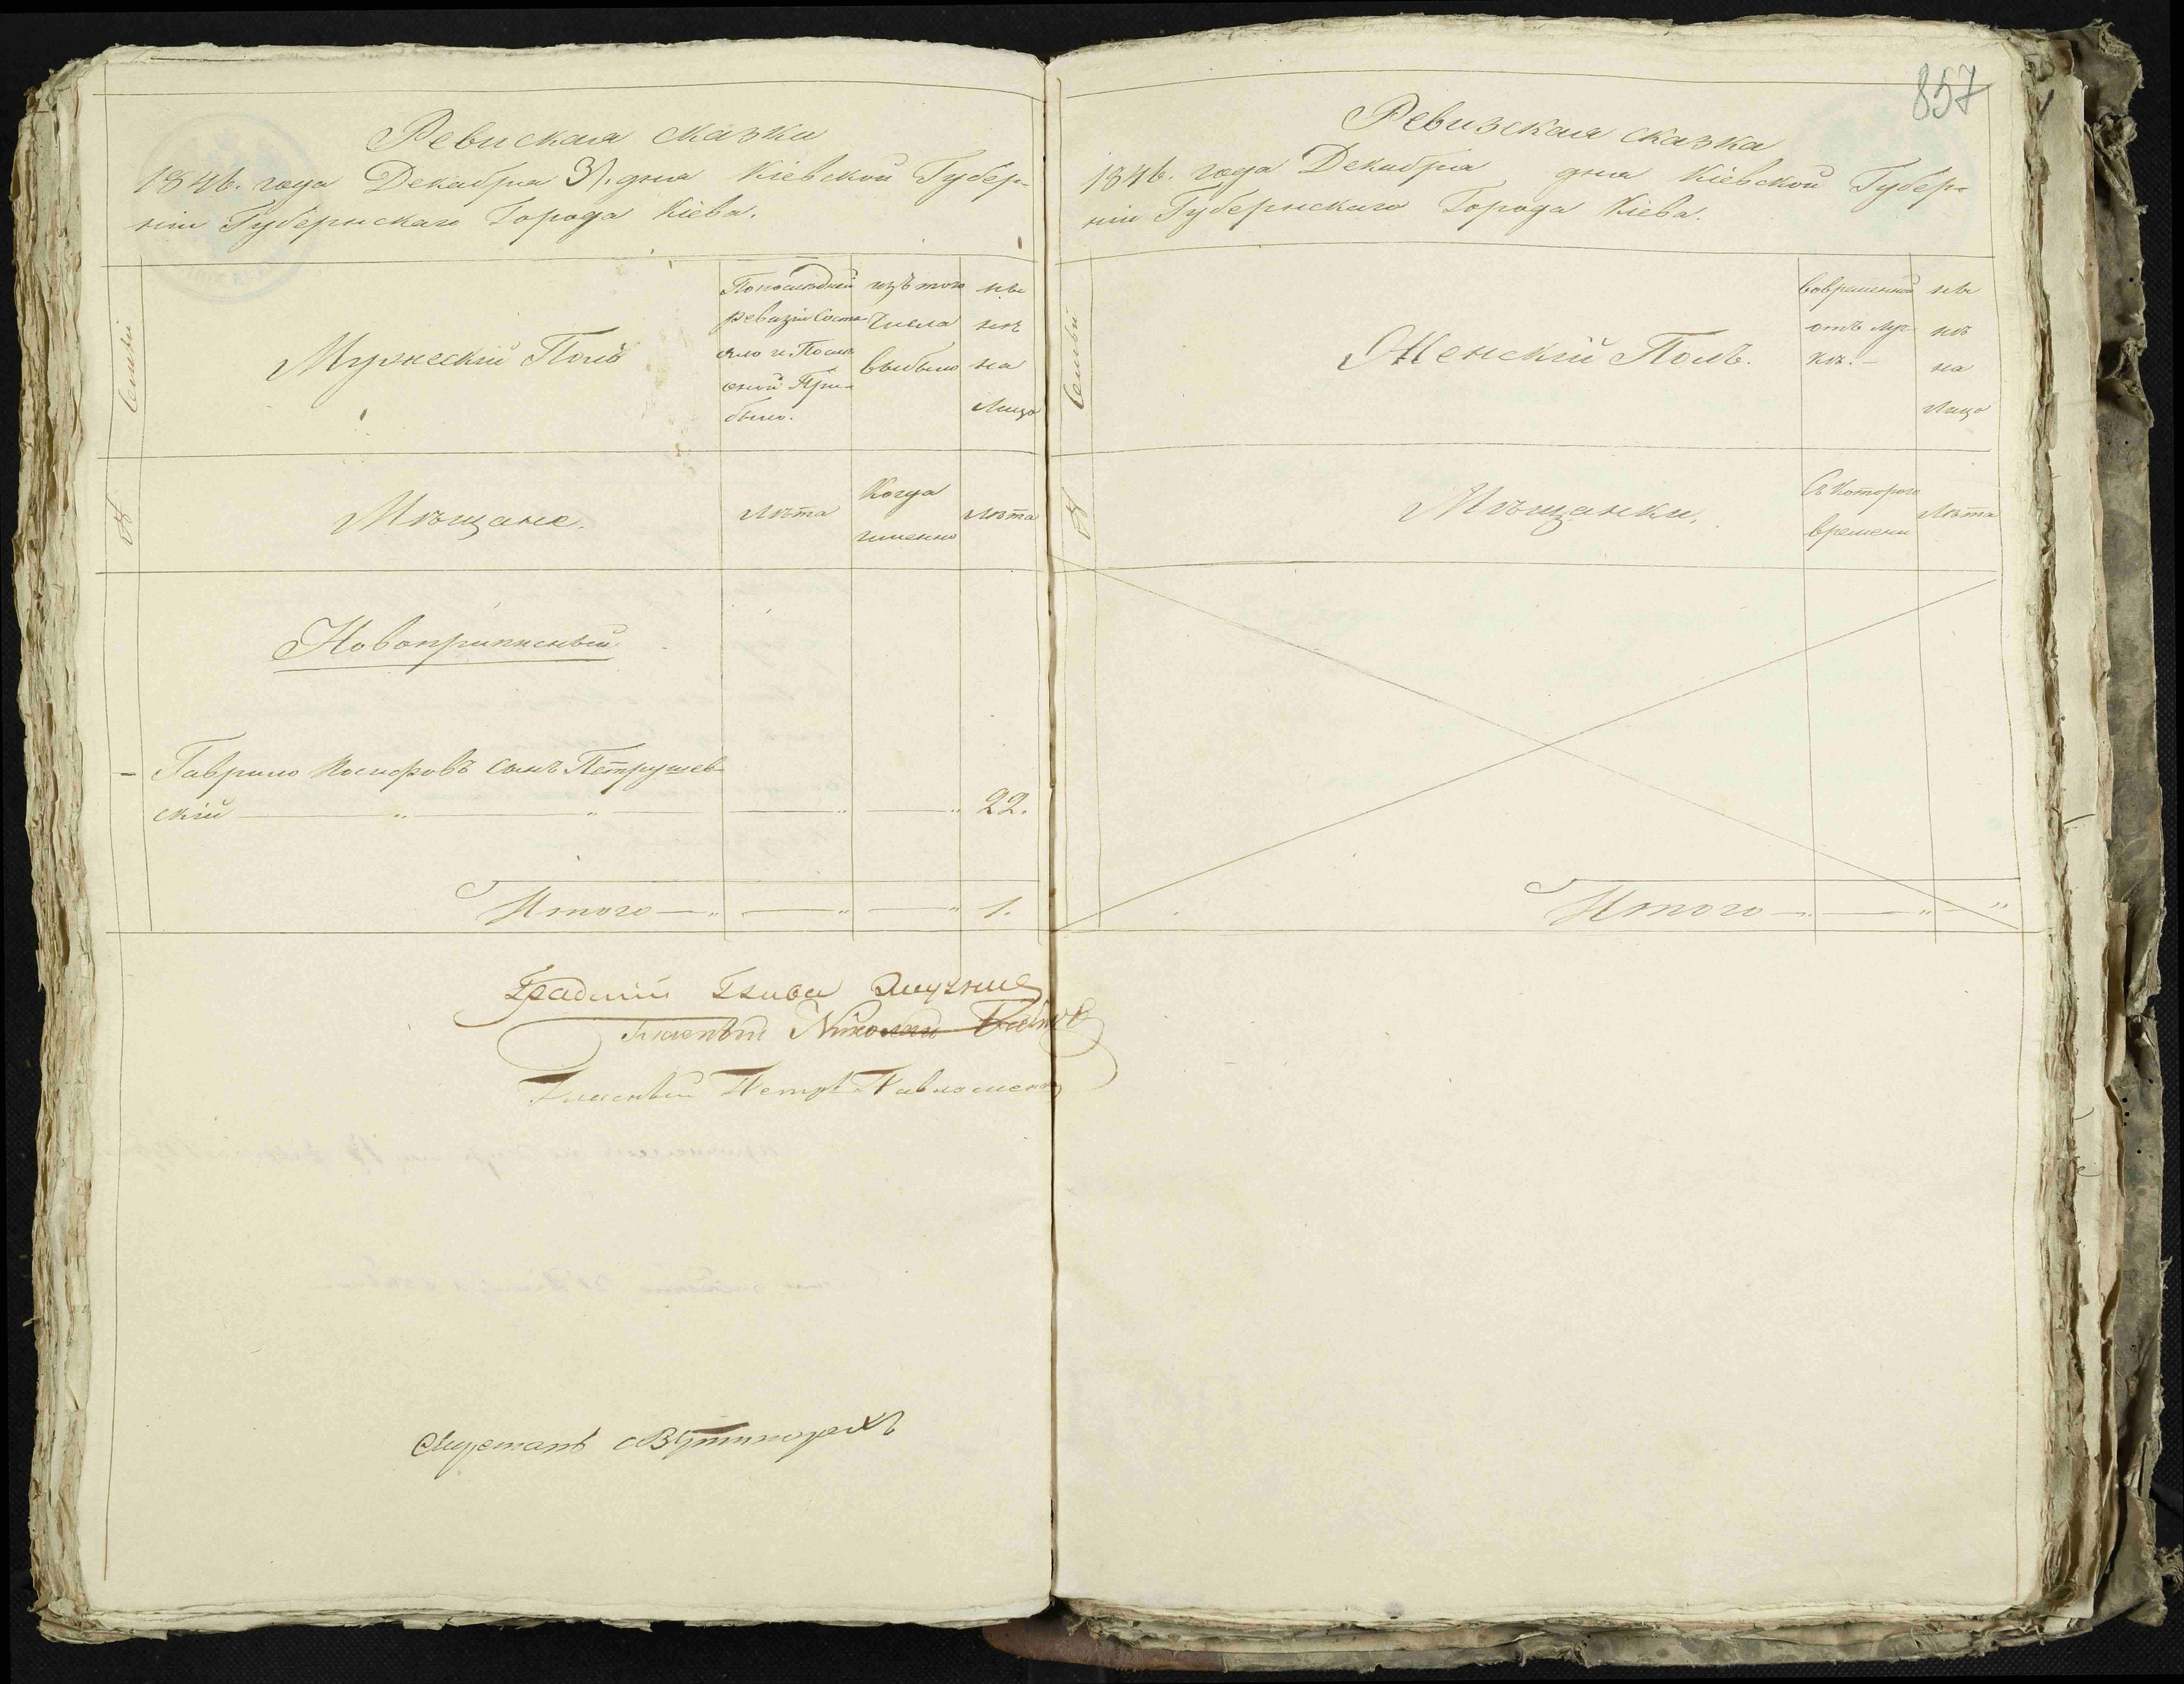 Ревиская сказка
1846. года Декабря 31. дня Кіевской Губер-
ніи Губернскаго Города Кіева.
Семьи
Мужескій Полъ
Попоследней
ревизіи Состо-
яло и После
оной При-
было.
изъ того
Числа
выбыло
ны
нѣ
на
Лицо
№
Мѣщане.
Лѣта
Когда
именно
Лѣта
Новоприписный
- Гаврило Иосифовъ Сынъ Петрушев-
скій — „ — „ — — „ — „ 22.
Итого — „ — „ — „ 1.
Градскій Глава
Гласный Николай
Гласный Петръ
857
Ревизская сказка
1846. года Декабря дня Кіевской Губер-
ніи Губернскаго Города Кіева.
Семьи
Женскій Полъ.
Вовременной
отлу-
кѣ. -
ны
нѣ
на
Лицо
№
Мѣщанки.
Съ Котораго
времени
Лѣта
Итого — „ — „ — „